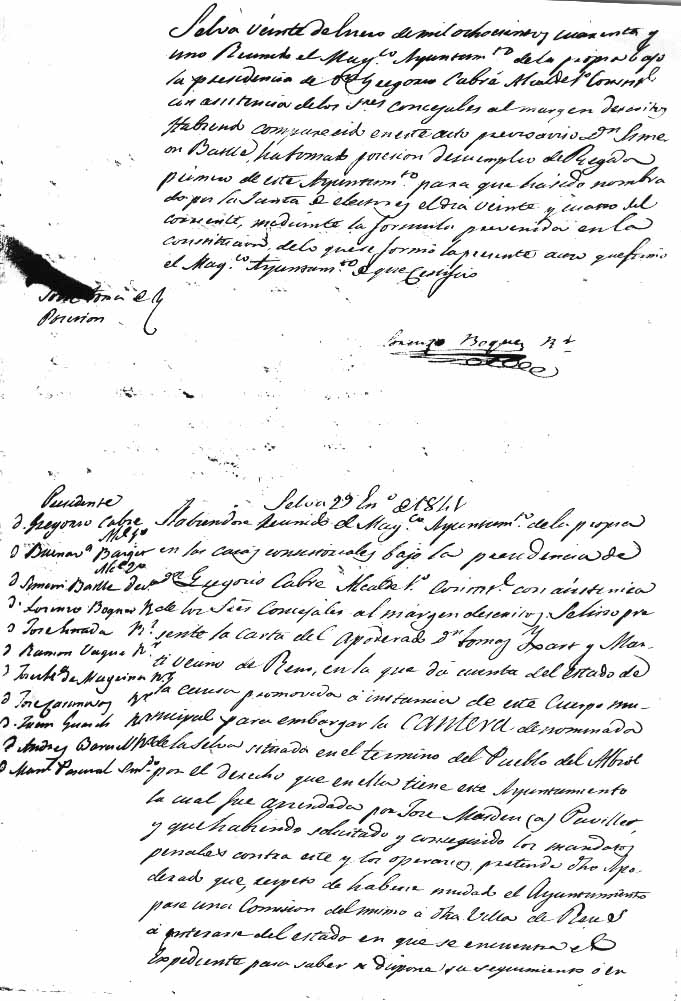 Selva veinte de Enero de mil ochocientos cuarenta y
uno Reunido el Mag.co Ayuntam.to de la propia bajo
la presidencia de Dn Gregorio Cabrá Alcalde 1.o Const.l
con asistencia de los Sres concejales al margen descritos
Habiend comparecid en este acto previo aviso Dn Sime
on Batlle, ha tomado posesion de su empleo de Regidor
primero de este Ayuntam.to para que ha sido nombra
do por la Junta de electores el dia veinte y cuatro del
corriente, mediante la formula prevenida en la
constitucion, de lo que se formó la presente acta que firmó
el Mag.co Ayuntam.to de que Certifico
Posesion
Lorenzo Boquer R.r
Selva 29 En.o de 1841
Presidente
D. Gregorio Cabre
Al.e 1.o
D Buenav.a
Al.e 2.o
D Simeon Batlle
D. Lorenzo Boquer R.
D Jose R.r
D Ramon R.r
D
D Jose
D. Juan
D Andres
D Man.l Pascual Sind.o
Habiendose reunido el Mag.co Ayuntam.to de la propia
en las casas consistoriales bajo la presidencia de
Dn Gregorio Cabre Alcalde 1.o Const.l con asistencia
de los Sres Concejales al margen descritos. Se hiso pre
sente la carta del Apoderado Dn Tomas Yxart y Mar-
ti vecino de Reus, en la que dá cuenta del estado de
la causa promovida á instancia de este Cuerpo mu-
nicipal para embargar la cantera denominada
de la Selva situada en el termino del Pueblo del Albiol
por el derecho que en ella tiene este Ayuntamiento
la cual fue arrendada por Jose (a)
y que habiendo solicitado y conseguido los mandatos
penales contra este y los operarios, pretende dho Apo-
derad que, respeto de haberse mudad el Ayuntamiento
pase una Comision del mismo á dha Villa de Reus
á enterarse del estado en que se encuentra el
Expediente para saber si dispone su seguimiento ó en